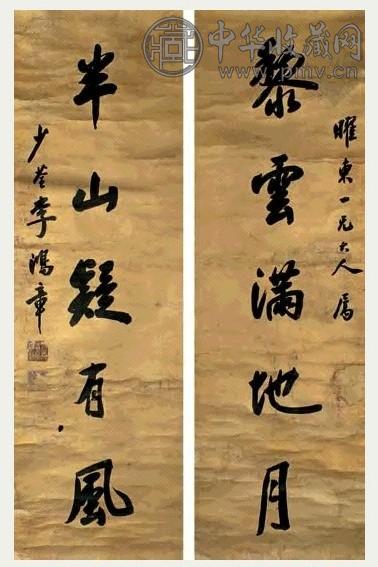 中华收藏网
www.pmv.cn
曜東一兄大人屬
黎雲滿地月
半山疑有風
少荃李鴻章